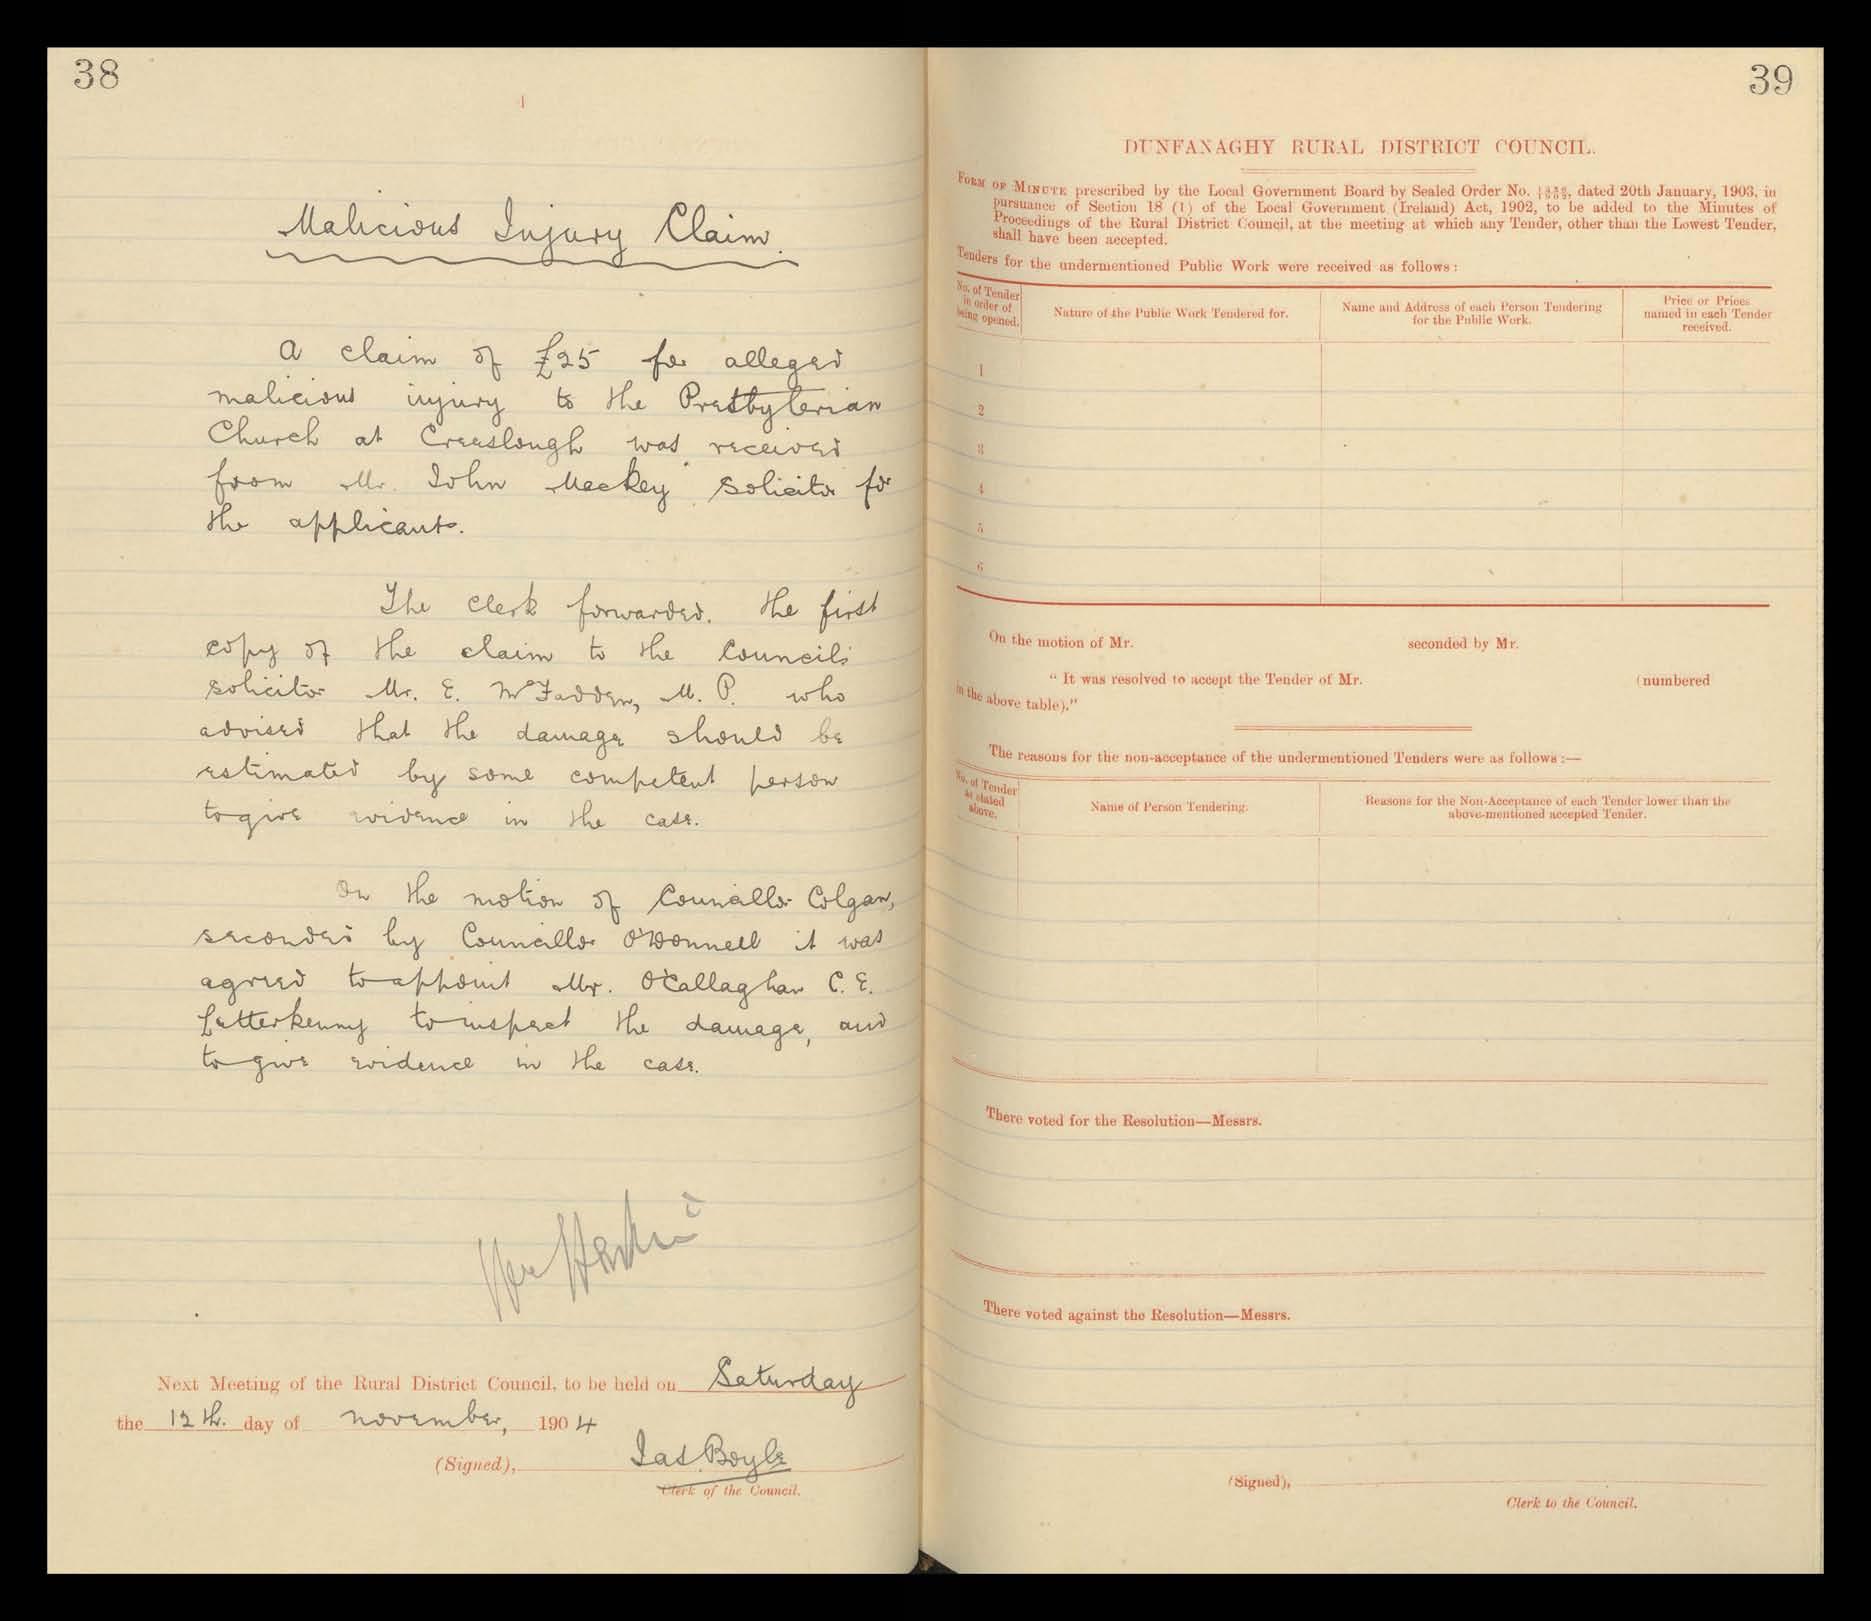 38
Malicious Injury Claim.
A claim of £25 for alleged
malicious injury to the Presbyterian
Church at Creeslough was received
from Mr. John Mackey solicitor for
the applicants.
The clerk forwarded. the first
copy of the claim to the Councils
solicitor Mr. E. McFadden, M. P. who
advised that the damage should be
estimated by some competent person
to give evidence in the case.
On the motion of Councillor Colgan,
seconded by Councillor O'Donnell it was
agreed to appoint Mr. O'Callaghan C. E.
Letterkenny to inspect the damage, and
to give evidence in the case.
Next Meeting of the Rural District Council, to be held on Saturday
the 12th. day of november, 1904
(Signed), Jas. Boyle
Clerk of the Council.
39
DUNFANAGHY RURAL DISTRICT COUNCIL.
FORM OF MINUTE prescribed by the Local Government Board by Sealed Order No. dated 20th January, 1903, in
pursuance of Section 18 (1) of the Local Government (Ireland) Act, 1902, to be added to the Minutes of
Proceedings of the Rural District Council, at the meeting at which any Tender, other than the Lowest Tender,
shall have been accepted.
Tenders for the undermentioned Public Work were received as follows:
No. of Tender
in order of
being opened.
Nature of the Public Work Tendered for.
Name and Address of each Person Tendering
for the Public Work.
Price or Prices
named in each Tender
received.
1
2
3
4
5
6
On the motion of Mr. seconded by Mr.
" It was resolved to accept the Tender of Mr. (numbered
in the above table)."
The reasons for the non-acceptance of the undermentioned Tenders were as follows:—
No. of Tender
as stated
above.
Name of Person Tendering.
Reasons for the Non-Acceptance of each Tender lower than the
above-mentioned accepted Tender.
There voted for the Resolution—Messrs.
There voted against the Resolution—Messrs.
(Signed),
Clerk to the Council.